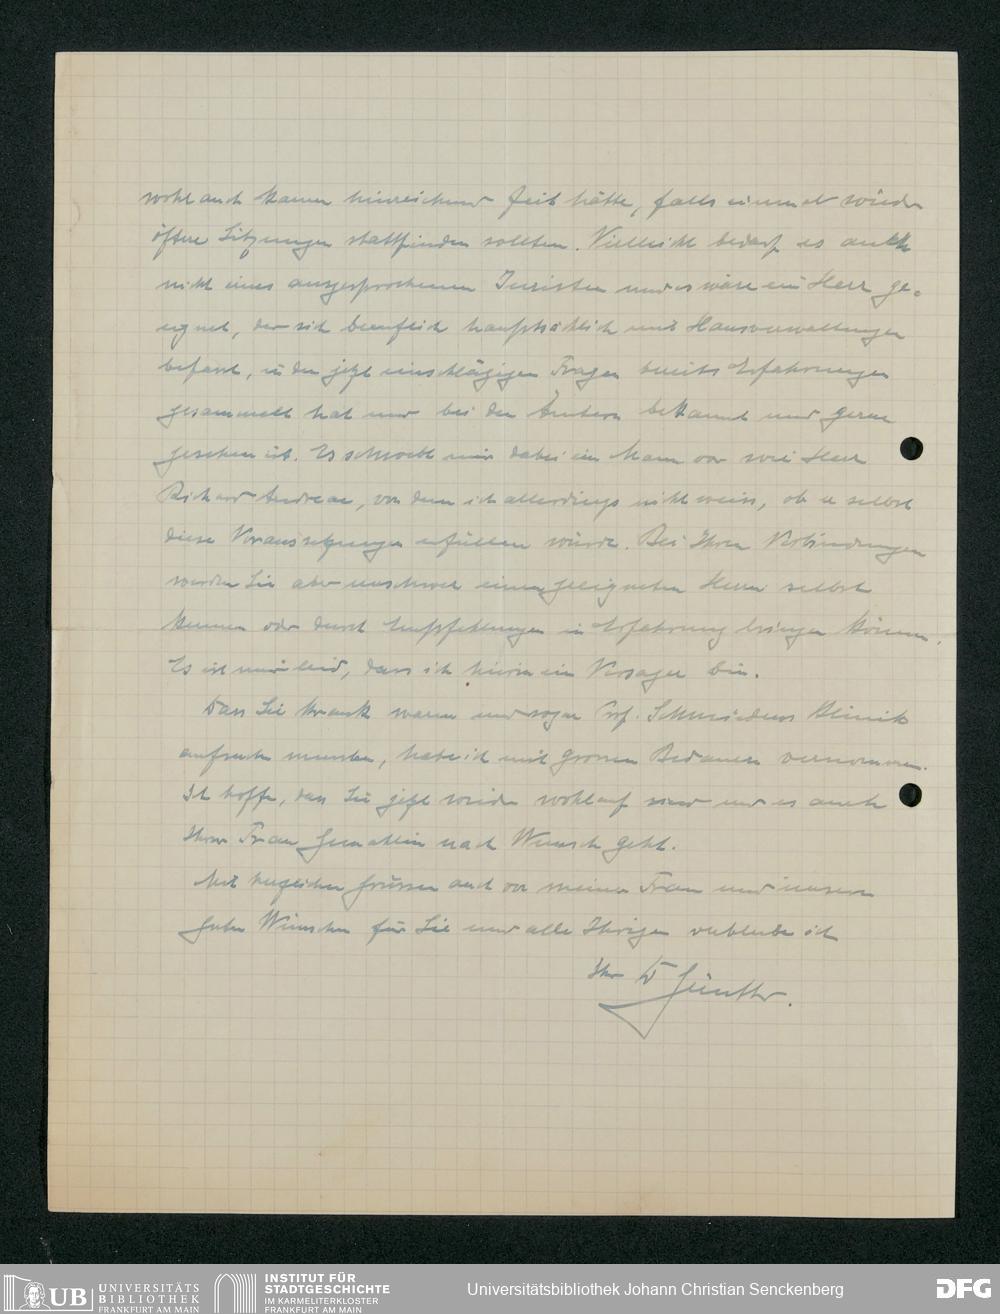 wohl auch kaum hinreichend Zeit hätte, falls einmal wieder
öftere Sitzungen stattfinden sollten. Vielleicht bedarf es auch
nicht eines ausgesprochenen Juristen und es wäre ein Herr ge-
eignet, der sich beruflich hauptsächlich mit Hausverwaltungen
befasst, in den jetzt einschlägigen Fragen bereits Erfahrungen
gesammelt hat und bei den Ämtern bekannt und gerne
gesehen ist. Es schwebt mir dabei ein Mann vor wie Herr
Richard Andreae, von dem ich allerdings nicht weiss, ob er selbst
diese Voraussetzungen erfüllen würde. Bei Ihren Verbindungen
werden Sie aber unschwer einen geeigneten Herrn selbst
kennen oder durch Empfehlungen in Erfahrung bringen können.
Es ist mir leid, dass ich hierin ein Versager bin.
Dass Sie krank waren und sogar Prof. Schmiedens Klinik
aufsuchen mussten, habe ich mit grossem Bedauern vernommen.
Ich hoffe, dass Sie jetzt wieder wohlauf sind und es auch
Ihrer Frau Gemahlin nach Wunsch geht.
Mit herzlichen Grüssen auch von meiner Frau und unseren
guten Wünschen für Sie und alle Ihrigen verbleibe ich
Ihr W Günther.
UB UNIVERSITÄTS
BIBLIOTHEK
FRANKFURT AM MAIN
INSTITUT FÜR
STADTGESCHICHTE
IM KARMELITERKLOSTER
FRANKFURT AM MAIN
Universitätsbibliothek Johann Christian Senckenberg
DFG